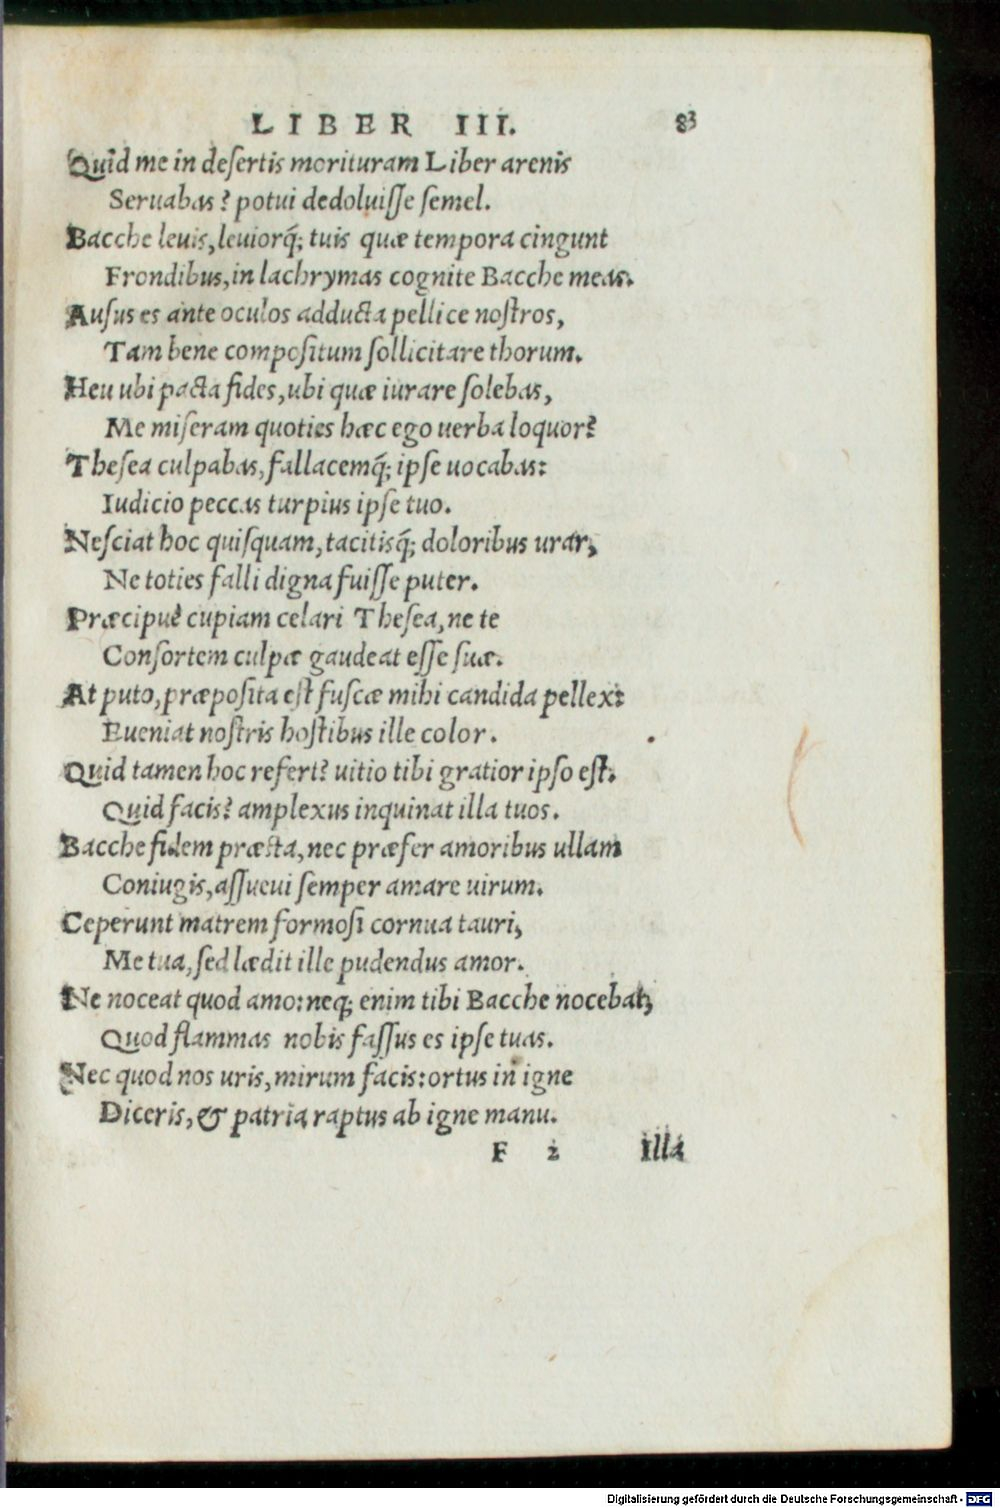 LIBER III. 83
Quid me in desertis morituram Liber arenis
Seruabas? potui dedoluisse semel.
Bacche leuis, leuiorq́; tuis quæ tempora cingunt
Frondibus, in lachrymas cognite Bacche meas.
Ausus es ante oculos adducta pellice nostros,
Tam bene compositum sollicitare thorum.
Heu ubi pacta fides, ubi quæ iurare solebas,
Me miseram quoties hæc ego uerba loquor?
Thesea culpabas, fallacemq́; ipse uocabas:
Iudicio peccas turpius ipse tuo.
Nesciat hoc quisquam, tacitisq́; doloribus urar,
Ne toties falli digna fuisse puter.
Præcipuè cupiam celari Thesea, ne te
Consortem culpæ gaudeat esse suæ.
At puto, præposita est fuscæ mihi candida pellex:
Eueniat nostris hostibus ille color.
Quid tamen hoc refert? uitio tibi gratior ipso est.
Quid facis? amplexus inquinat illa tuos.
Bacche fidem præsta, nec præfer amoribus ullam
Coniugis, assueui semper amare uirum.
Ceperunt matrem formosi cornua tauri,
Me tua, sed lædit ille pudendus amor.
Ne noceat quod amo: neq; enim tibi Bacche nocebat,
Quod flammas nobis fassus es ipse tuas.
Nec quod nos uris, mirum facis: ortus in igne
Diceris, & patria raptus ab igne manu.
F 2 Illa
Digitalisierung gefördert durch die Deutsche Forschungsgemeinschaft - DFG